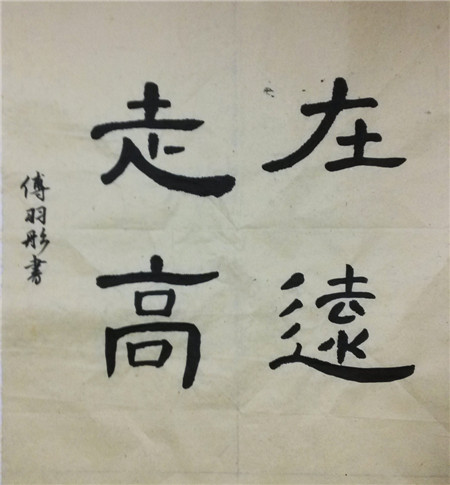 在遠
走高
傅羽彤書